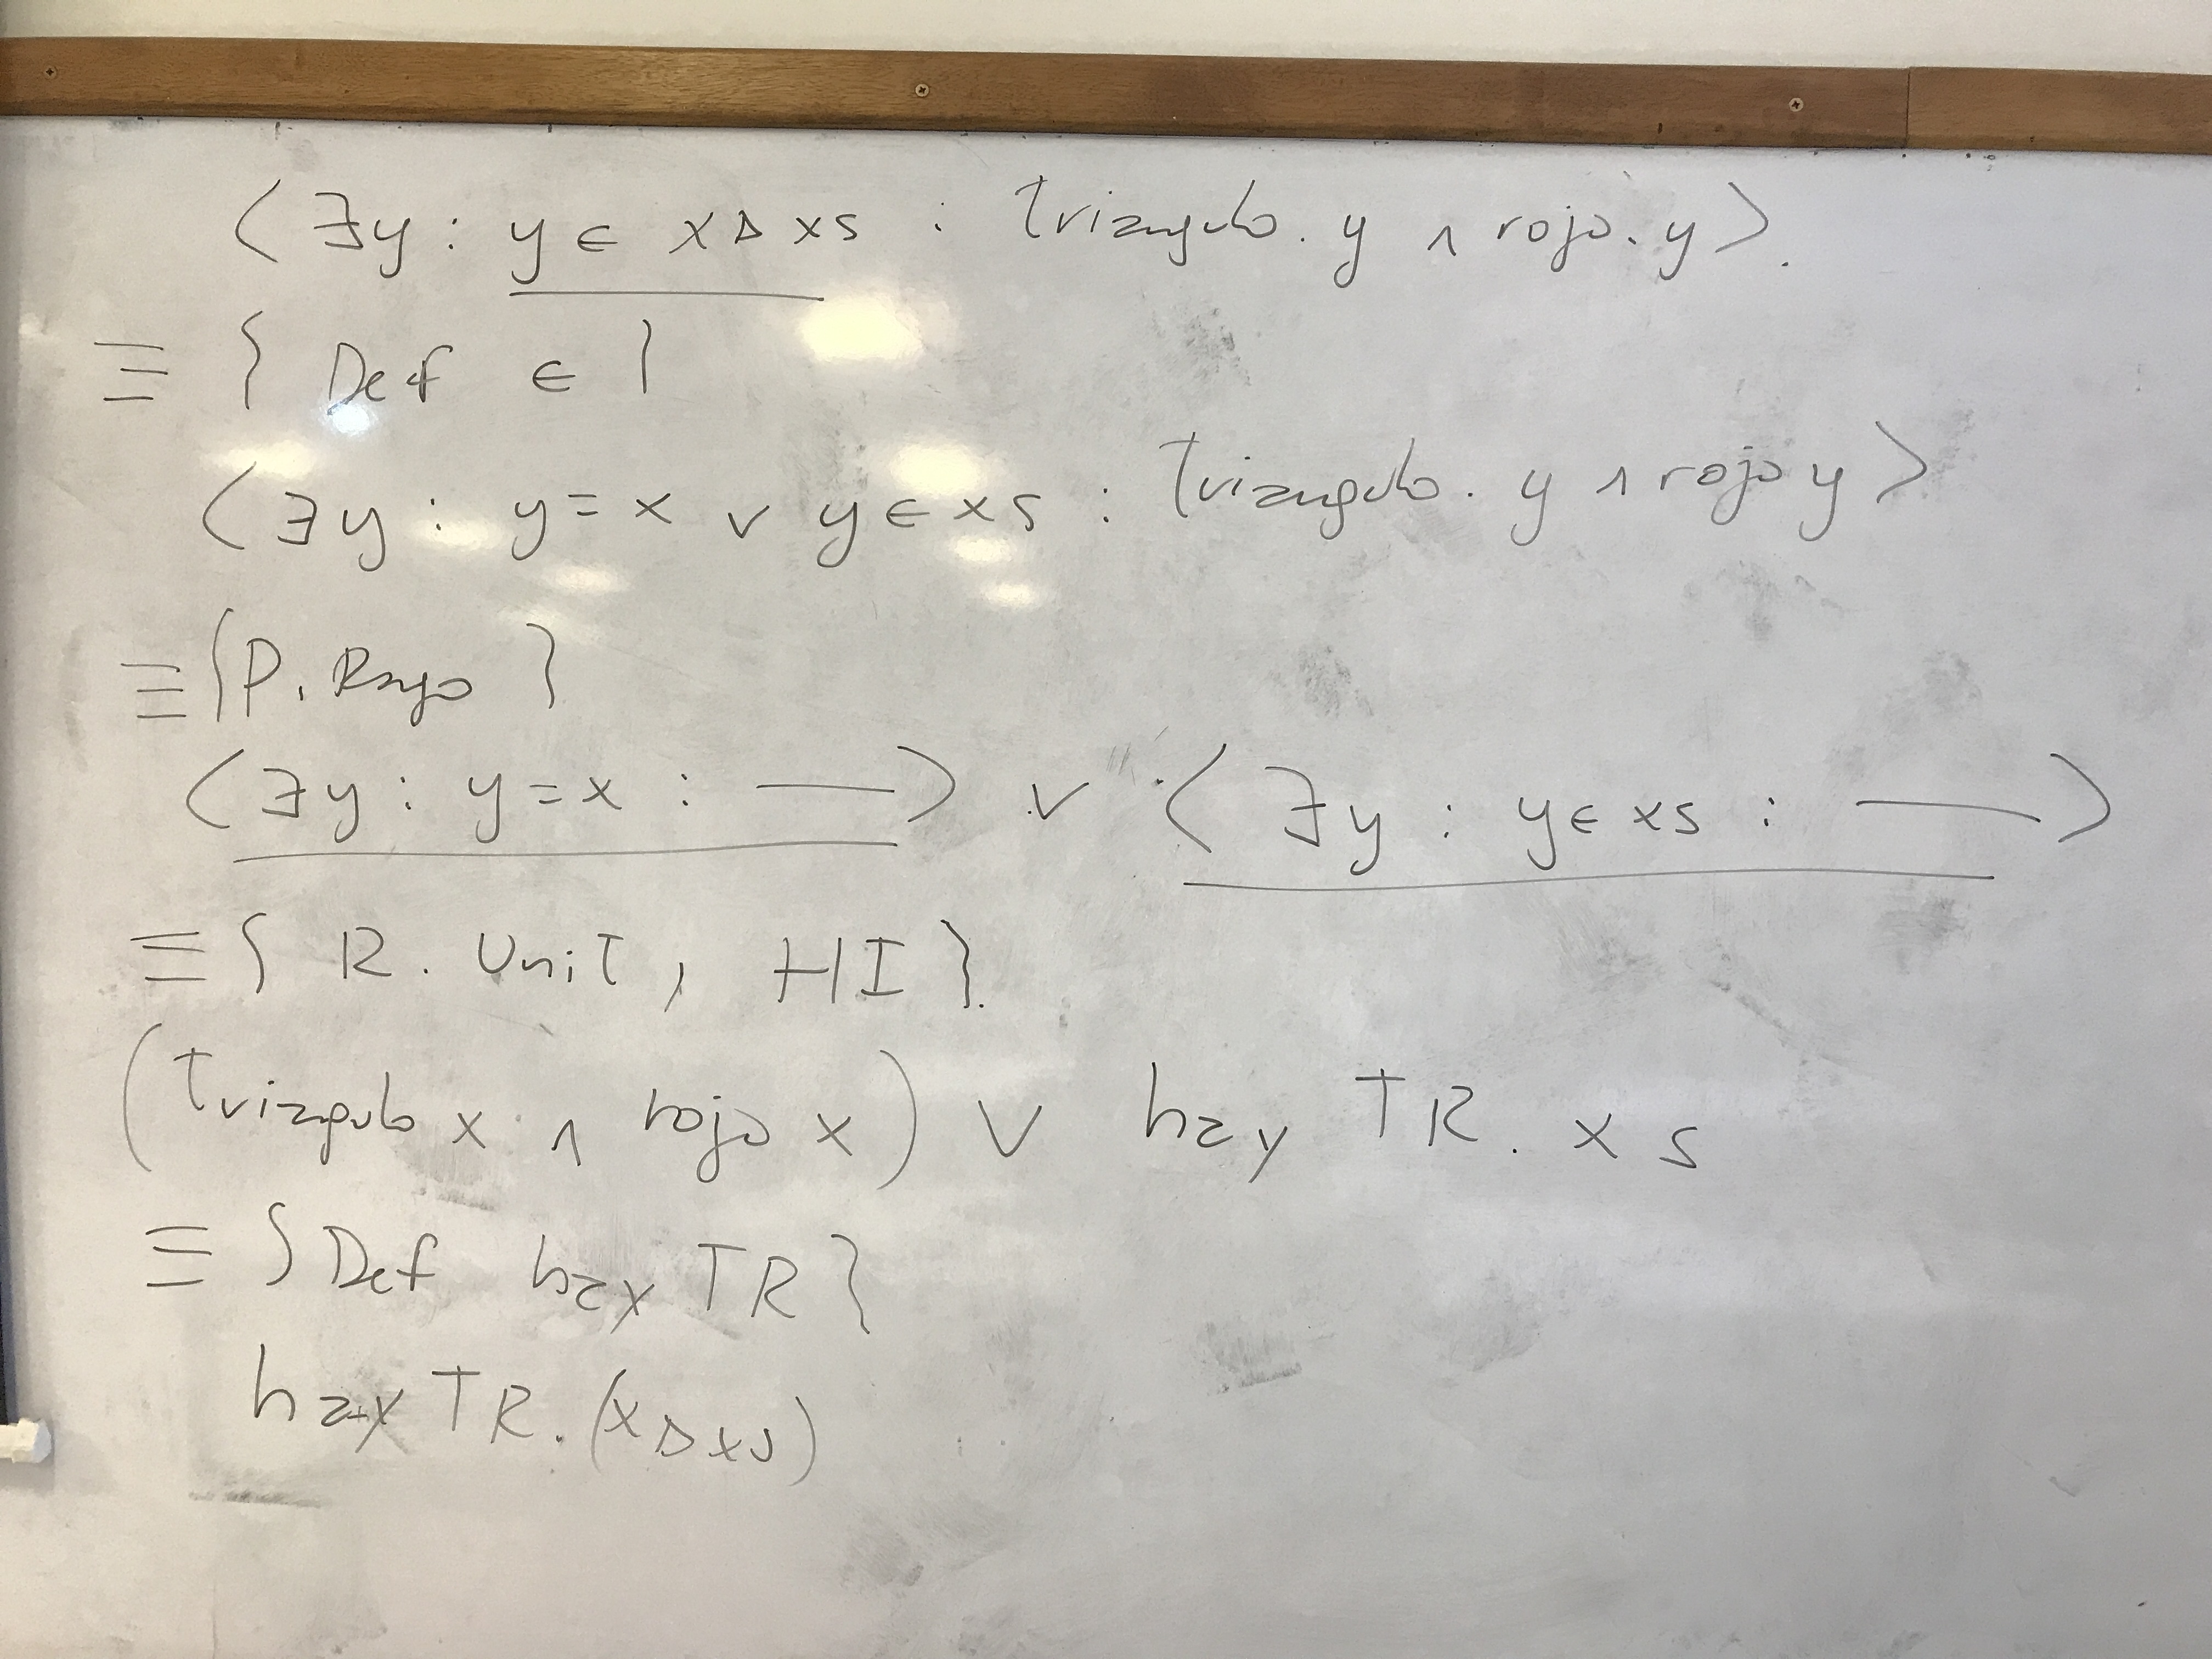 ⟨∃y : y ∈ x▹xs : triangulo.y ∧ rojo.y⟩.
≡ { Def ∈ }
⟨∃y : y = x ∨ y ∈ xs : triangulo.y ∧ rojo y⟩
≡ {P. Rango }
⟨∃y : y = x : ——⟩ ∨ ⟨∃y : y ∈ xs : ——⟩
≡ { R. Unit, HI }.
(triangulo x ∧ rojo x) ∨ hay TR. xs
≡ { Def hay TR }
hay TR. (x▹xs)